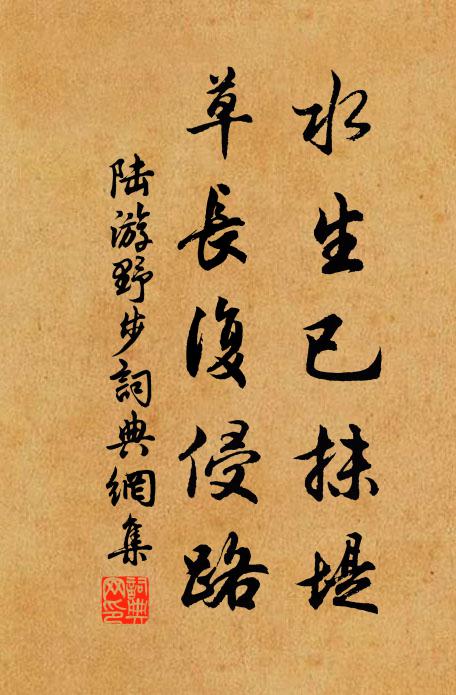 水生已抹堤
草長復侵路
陆游野步詞典網集
詞典网印